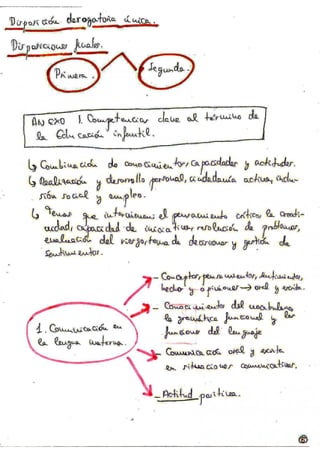 Disposición derogatoria única.
Disposiciones finales.
Primera.
Segunda.
ANEXO I. Competencias clave al término de
la Educación infantil.
↳ Combinación de conocimientos, capacidades y actitudes.
↳ Realización y desarrollo personal, ciudadanía activa, inclu-
sión social y empleo.
↳ Temas que intervienen: el pensamiento crítico, la creati-
vidad, capacidad de iniciativa, resolución de problemas,
evaluación del riesgo, toma de decisiones y gestión de
sentimientos.
1. Comunicación en
la lengua materna.
- Conceptos, pensamientos, sentimientos,
hechos y opiniones → oral y escrita.
- Conocimiento del vocabulario
la gramática funcional y las
funciones del lenguaje
- Comunicación oral y escrita
en situaciones comunicativas.
- Actitud positiva.
6